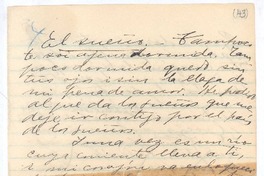 (43)
El sueño. — Tampoco
te soi ajena dormida. Tam
poco dormida quedo sin
tus ojos i sin la llaga de
mi pena de amor. He pedido
al que da los sueños que me
deje ir contigo por el país
de los sueños.
Una vez es un río
cuya corriente lleva a ti
i mi corazón va en